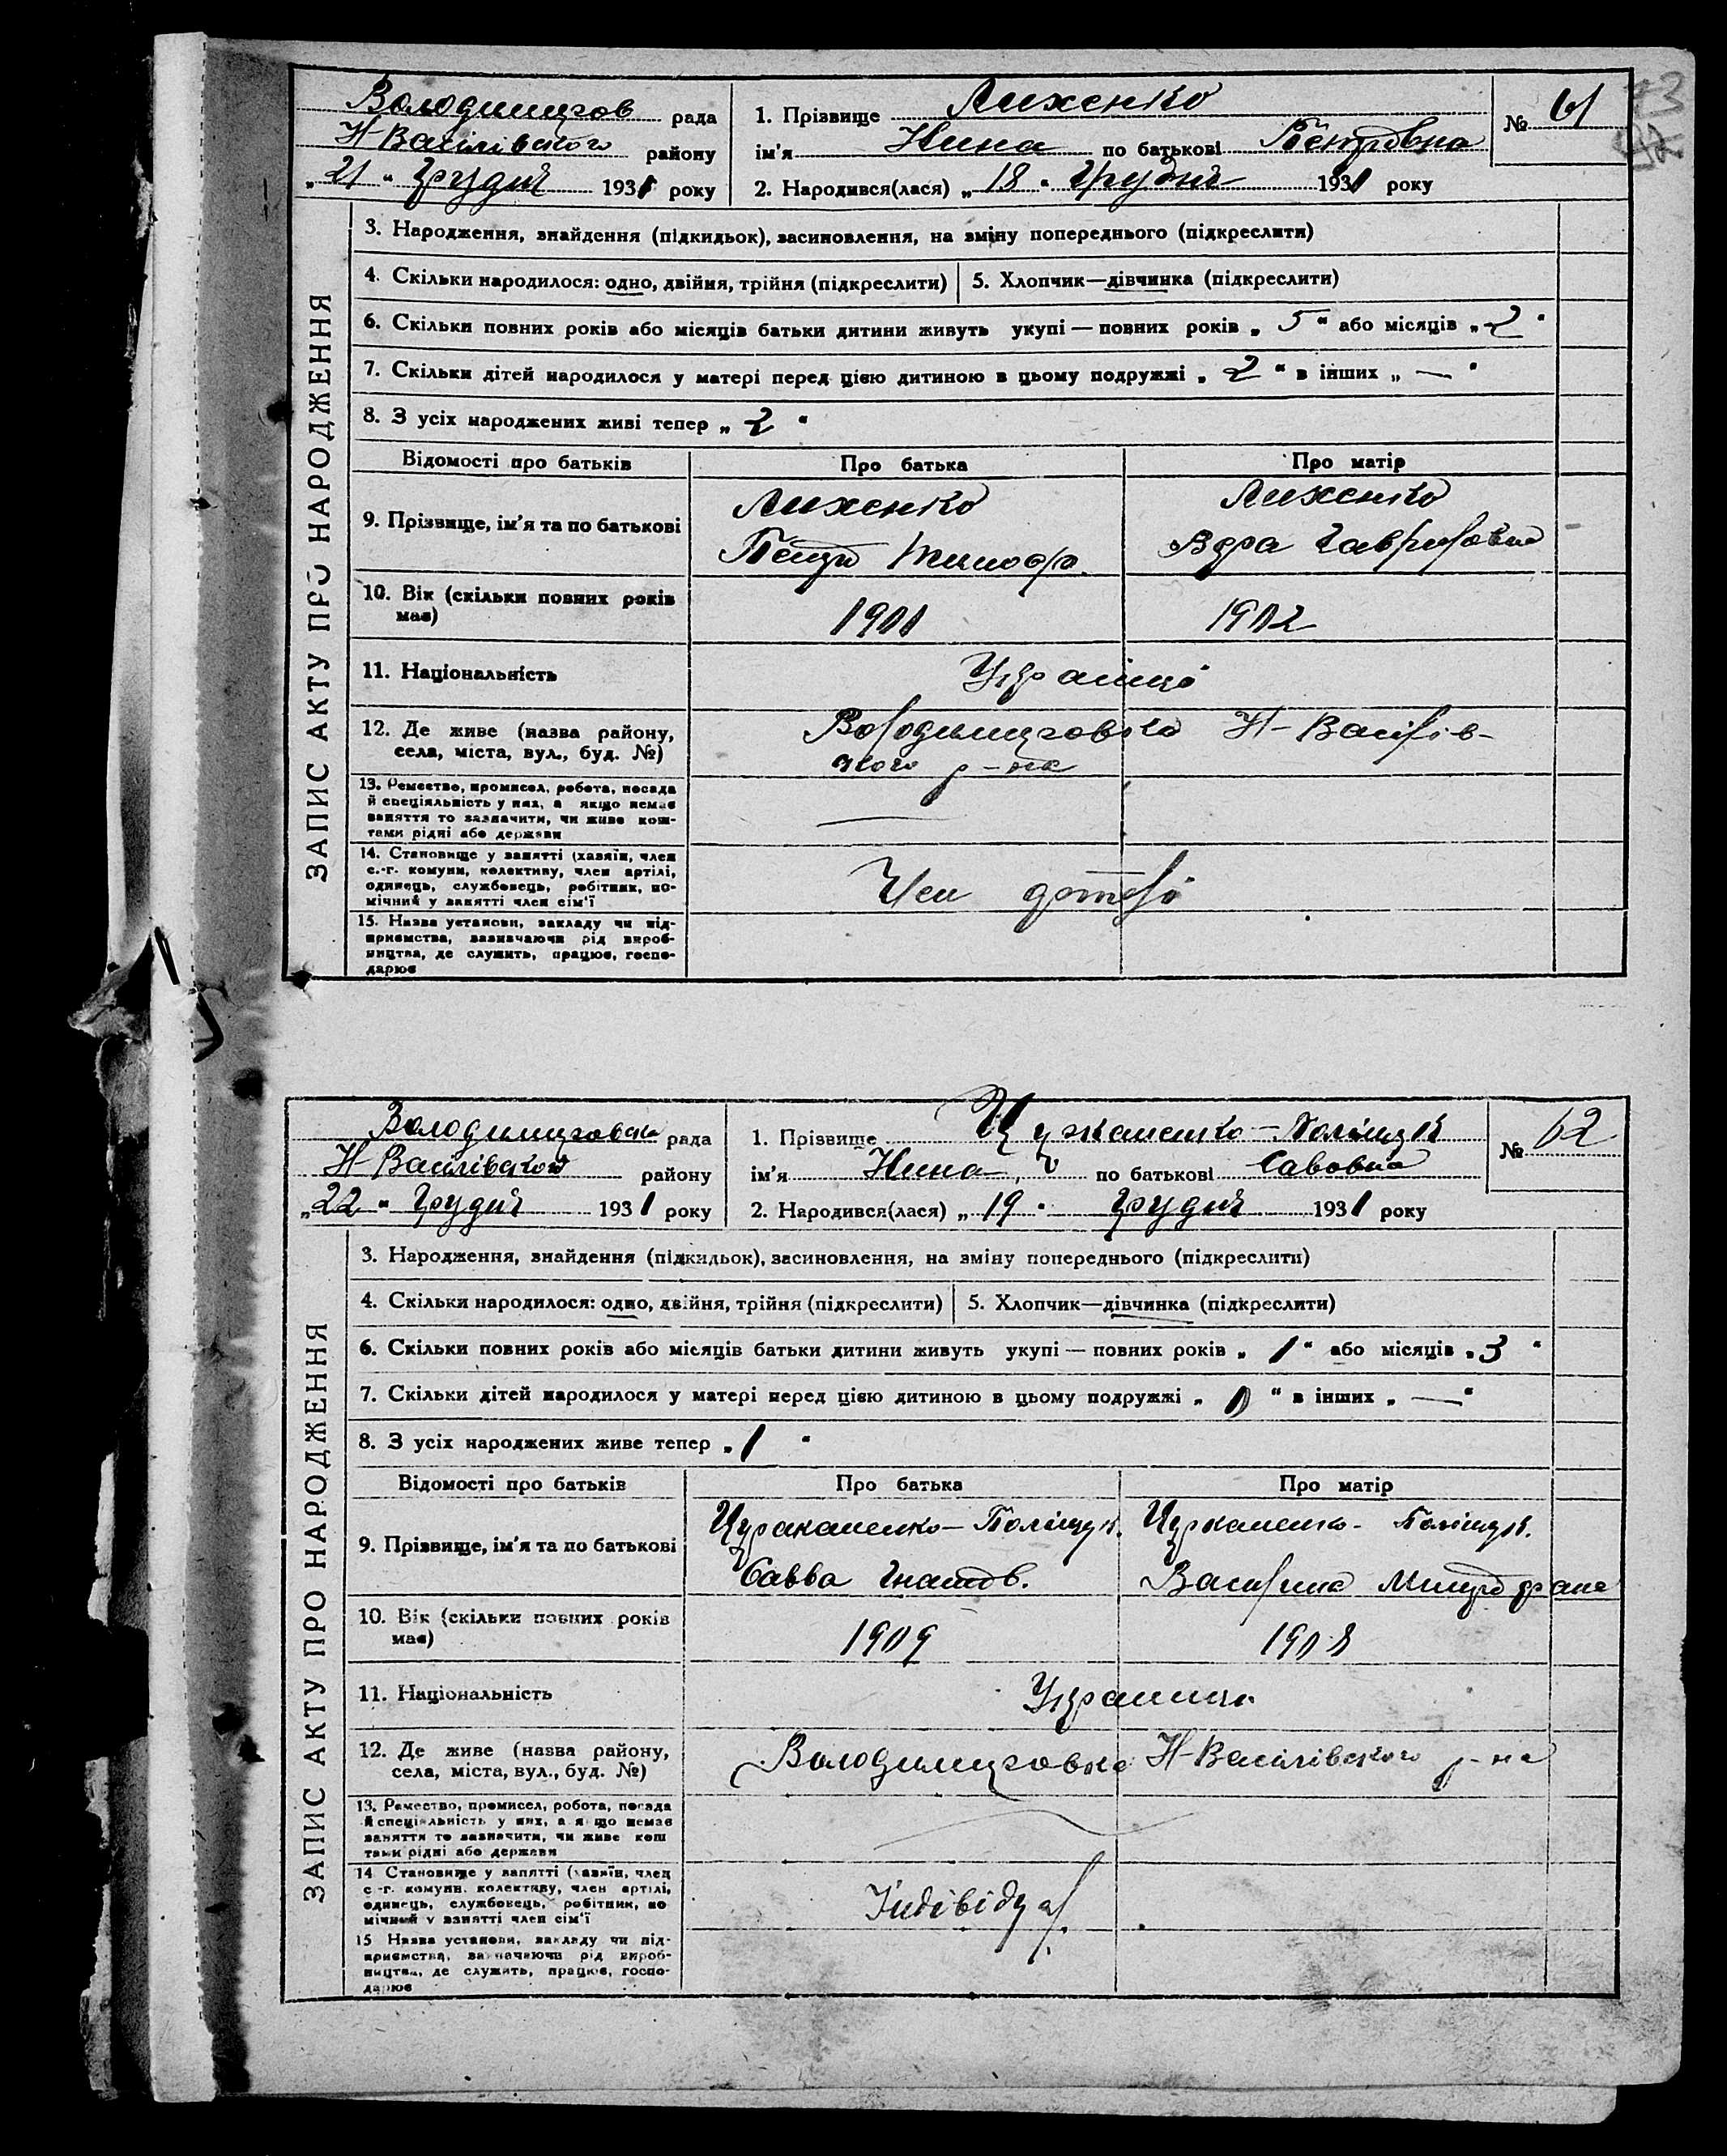 73
Володимиров рада
Н-Василівського району
„21“ грудня 1931 року
1. Прізвище Лихенко
ім'я Нина по батькові Петровна
2. Народився(лася) „18“ грудня 1931 року
№ 61
ЗАПИС АКТУ ПРО НАРОДЖЕННЯ
3. Народження, знайдення (підкидьок), засиновлення, на зміну попереднього (підкреслити)
4. Скільки народилося: одно, двійня, трійня (підкреслити) 5. Хлопчик—дівчинка (підкреслити)
6. Скільки повних років або місяців батьки дитини живуть укупі — повних років „5“ або місяців „2“
7. Скільки дітей народилося у матері перед цією дитиною в цьому подружжі „2“ в інших „—“
8. З усіх народжених живі тепер „2“
Відомості про батьків Про батька Про матір
9. Прізвище, ім'я та по батькові
Лихенко Лихенко
Петро Тимоф. Вера Гавриловна
10. Вік (скільки повних років
має)
1901 1902
11. Національність Українці
12. Де живе (назва району,
села, міста, вул., буд. №)
Н-Василів-
ского р-на
13. Ремество, промисел, робота, посада
й спеціяльність у них, а якщо немає
заняття то зазначити, чи живе кош-
тами рідні або держави
14. Становище у занятті (хазяїн, член
с.-г. комуни, колективу, член артілі,
одинець, службовець, робітник, по-
мічний у занятті член сім'ї
Член
15. Назва установи, закладу чи під-
приємства, зазначаючи рід вироб-
ництва, де служить, працює, госпо-
дарює
рада
Н-Василівского району
„22“ грудня 1931 року
1. Прізвище Цуркаленко-Поліщук
ім'я Нина по батькові Савовна
2. Народився(лася) „19“ грудня 1931 року
№ 62
ЗАПИС АКТУ ПРО НАРОДЖЕННЯ
3. Народження, знайдення (підкидьок), засиновлення, на зміну попереднього (підкреслити)
4. Скільки народилося: одно, двійня, трійня (підкреслити) 5. Хлопчик—дівчинка (підкреслити)
6. Скільки повних років або місяців батьки дитини живуть укупі — повних років „1“ або місяців „3“
7. Скільки дітей народилося у матері перед цією дитиною в цьому подружжі „0“ в інших „—“
8. З усіх народжених живе тепер „1“
Відомості про батьків Про батька Про матір
9. Прізвище, ім'я та по батькові
Поліщук. Поліщук.
Савва Гнатов. Василина
10. Вік (скільки повних років
має)
1909 1908
11. Національність Українці
12. Де живе (назва району,
села, міста, вул., буд. №)
Н-Василівского р-на
13. Ремество, промисел, робота, посада
й спеціяльність у них, а якщо немає
заняття то зазначити, чи живе кош
тами рідні або держави
14 Становище у занятті (хазяїн, член
с.-г. комуни, колективу, член артілі,
одинець, службовець, робітник, по
мічний у занятті член сім'ї
Індівідуал.
15 Назва установи, закладу чи під-
приємства, зазначаючи рід вироб-
ництва, де служить, працює, госпо-
дарює